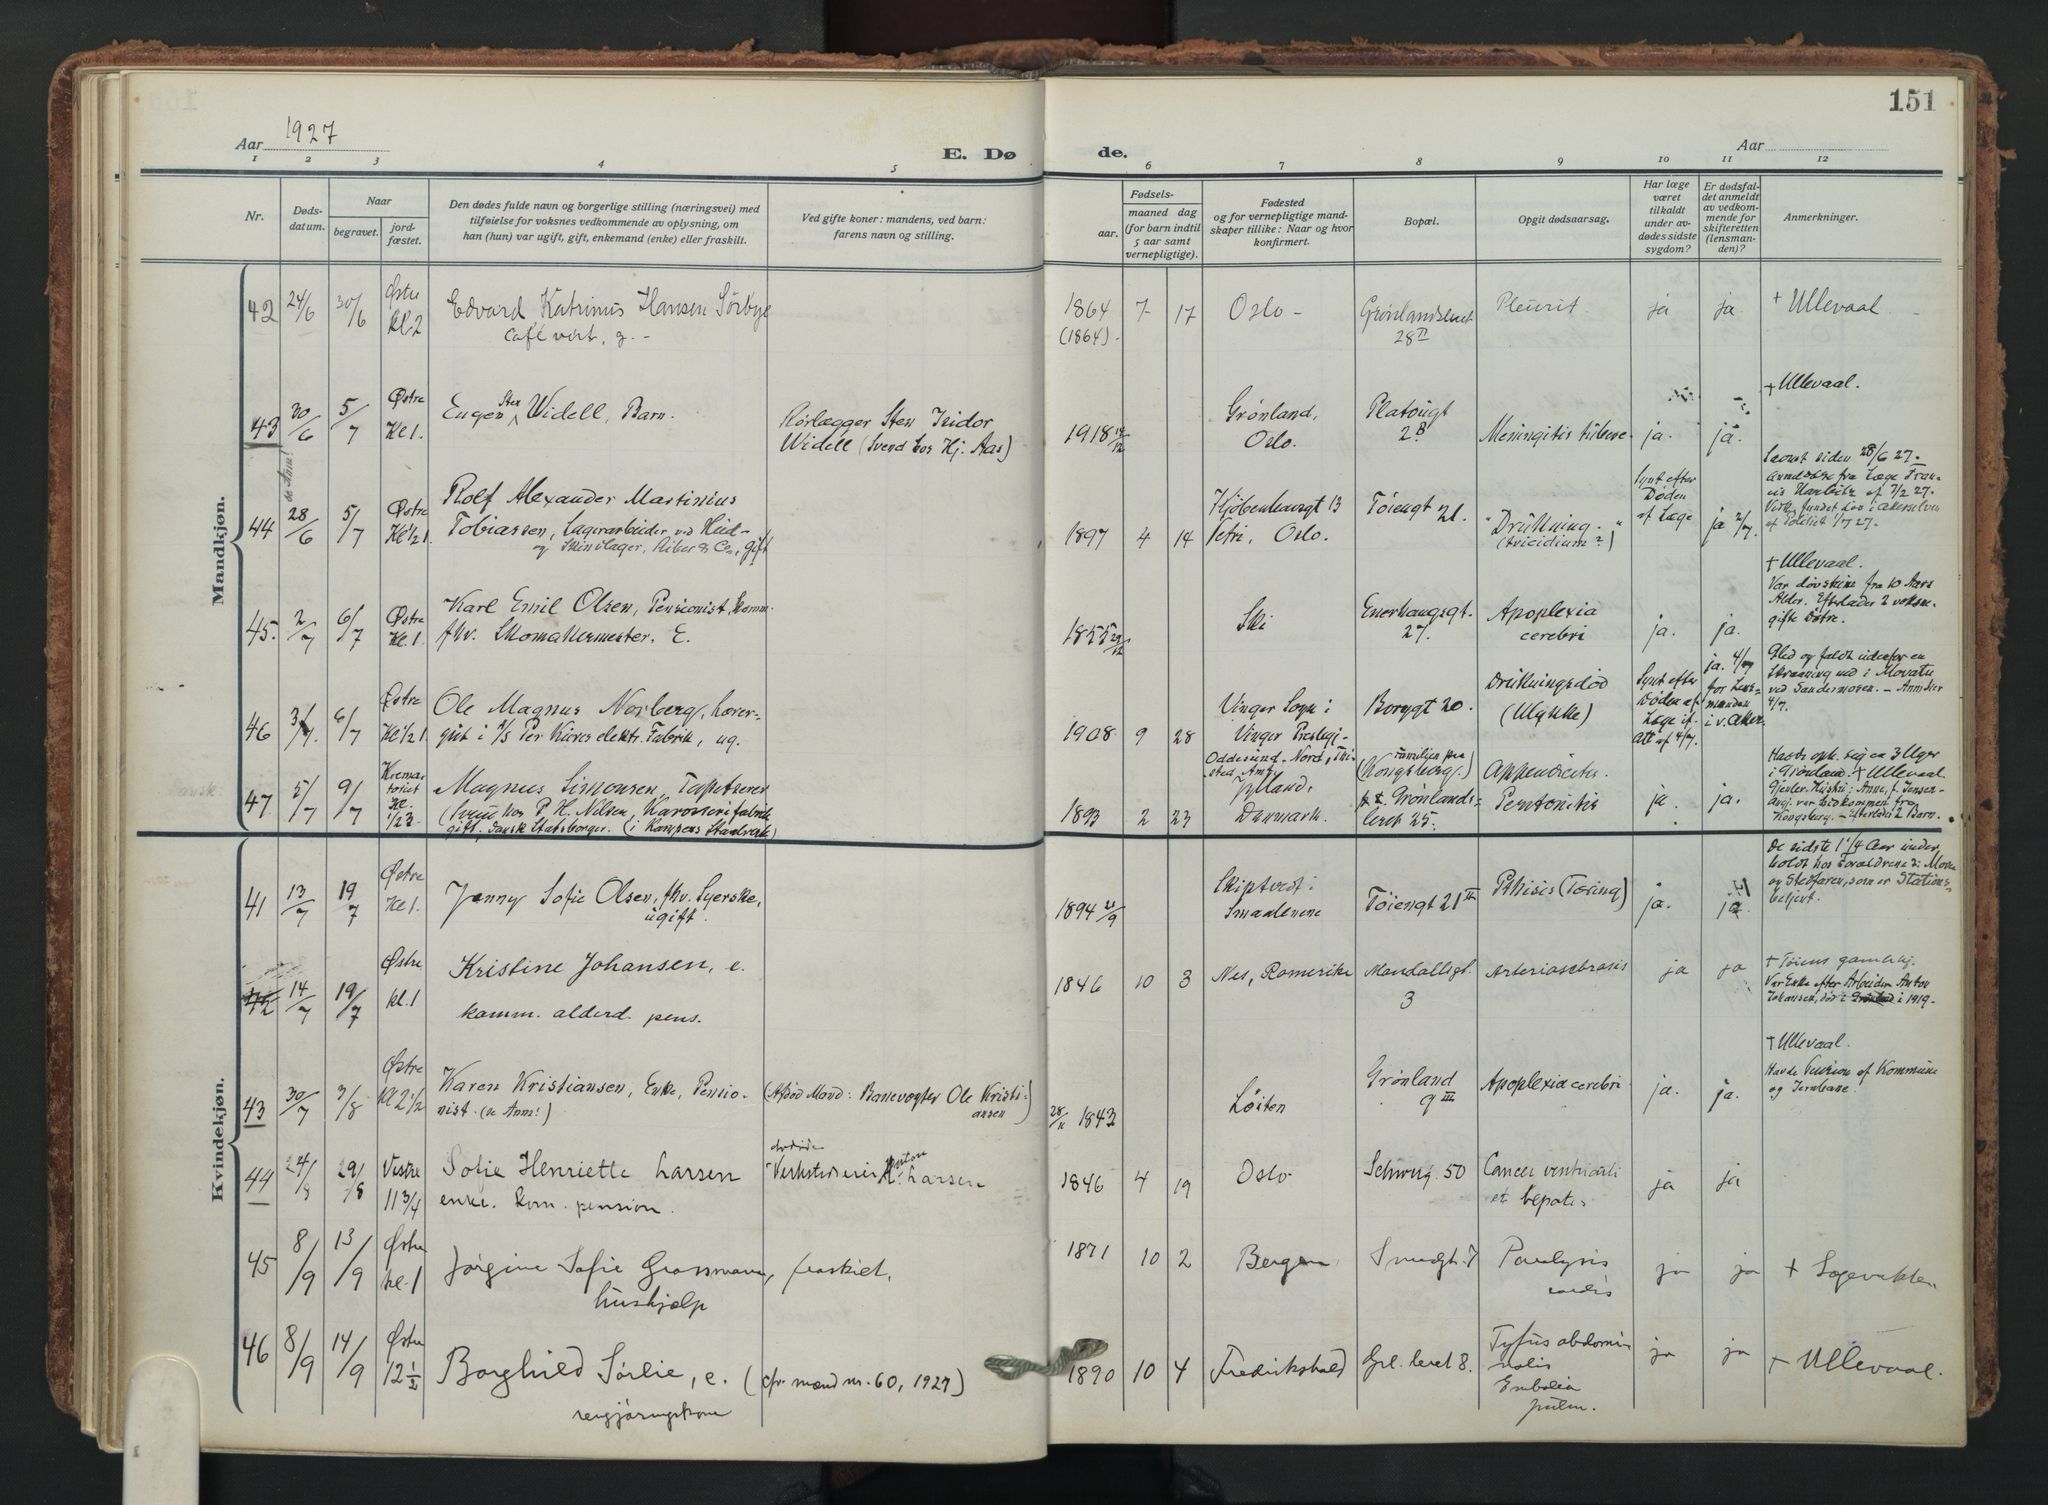 151
Aar 1927
E. Dø
de.
Aar
1 2 3 4 5 6 7 8 9 10 11 12
Nr.
Døds-
datum.
Naar
begravet.
jord-
fæstet.
Den dødes fulde navn og borgerlige stilling (næringsvei) med
tilføielse for voksnes vedkommende av oplysning, om
han (hun) var ugift, gift, enkemand (enke) eller fraskilt.
Ved gifte koner: mandens, ved barn:
farens navn og stilling.
Fødsels-
aar.
maaned dag
(for barn indtil
5 aar samt
vernepligtige).
Fødested
og for vernepligtige mand-
skaper tillike: Naar og hvor
konfirmert.
Bopæl.
Opgit dødsaarsag.
Har læge
været
tilkaldt
under av-
dødes sidste
sygdom?
Er dødsfal-
det anmeldt
av vedkom-
mende for
skifteretten
(lensman-
den)?
Anmerkninger.
Mandkjøn.
42 24/6 30/6 Østre kl. 2
Edvard Katrinus Hansen Sörbye
Café vert, g. -
1864 7 17 Oslo -
(1864).
Grønlandsleret
28 II
Pleurit. ja ja + Ullevaal
43 30/6 5/7 Østre Kl 1.
Eugen Sten Widell, Barn.
Rørlægger Sten Isidor
Widell (Svend hos Hj. Aas)
1918 Grønland,
Oslo.
Platougt
2B
Meningitis tuberc. ja. ja.
+ Ullevaal.
44 28/6 5/7 Østre Kl 1/2 1.
se Anm!
Rolf Alexander Martinius
Tobiassen, Lagerarbeider ved Hud-
og Skindlager, Riber & Co., gift
1897 4 14
Kjøbenhavngt 13
Petri, Oslo.
Töiengt 21.
"Drukning."
(suicidium?)
Synt efter
Døden
af Læge
ja 2/7.
Savnet siden 28/6 27.
45. 2/7 6/7 Østre Kl. 1
Karl Emil Olsen, Pensionist, Komm.
fhv. Skomakermester. E.
1855 29/12 Ski
Enerhaugsgt.
27.
Apoplexia
cerebri
ja. ja.
+ Ullevaal.
Var døvstum fra 10 Aars
Alder. Efterlader 2 voksne
gifte Døtre.
46 3/7. 6/7 Østre Kl 1/2 1
Ole Magnus Norberg, hærer-
gut i A/S Per Kures elektr. Fabrik, ug.
1908 9 28
Vinger Sogn i
Vinger Prestegj.
Borggt 20.
Drukningsdød
(Ulykke)
Synt efter
Døden af
Læge if.
Att af 4/7.
ja. 4/7
for Lens-
manden
i v. Aker.
Gled og faldt utenfor en
Skraaning ud i Movatn
ved Sandermosen. -
47 5/7 9/7 Kremato-
riet
Kl.
1/2 3.
Magnus Simonsen, Tapetserer
(Svend hos P. H. Nilsen, Karosserifabrik
gift. Dansk Statsborger. (i Kampens Staalverk)
1893 2 23
Oddesund - Nord, Thi-
sted Amt,
Jylland,
Danmark.
(Familien paa
Kongsberg.)
p. t. Grønlands-
leret 25.
Appendicitis.
Peritonitis
ja. ja.
Havde opholdt sig ca 3 Uger
i Grønland. + Ullevaal.
Kongsberg. - Efterlader 2 Barn.
Kvindekjøn.
41 13/7 19/7 Østre Kl 1.
Jenny Sofie Olsen, fhv. Syerske,
ugift.
1894 21/9
Skiptvedt i
Smaalenene
Töiengt 21 II
Pthisis (Tæring) ja. ja.
De sidste 1 1/4 Aar under-
holdt hos Forældrene: Moren
og Stedfaren, som er Stations-
betjent.
42 14/7 19/7 Østre kl. 1
Kristine Johansen, e.
komm. alderd. pens.
1846 10 3 Nes, Romerike
Mandallsgt.
3
Arteriosclerosis ja ja
+ Töiens gamlehj.
Var Enke efter Arbeider Anton
Johansen, død i Grönland i 1919.
43 30/7 3/8 Østre Kl 2 1/2
Karen Kristiansen, Enke, Pensio-
nist. (se Anm!)
(Afdød Mand: Banevogter Ole Kristi-
ansen)
28/11 1843 Löiten
Grønland
9 III
Apoplexia cerebri ja. ja.
+ Ullevaal.
Havde Pension af Kommune
og Jernbane.
44 24/8 29/8 Vestre 11 3/4
Sofie Henriette Larsen
enke. Kom. pension.
Larsen
1846 4 19 Oslo
Schweig. 50
Cancer ventriculi
et hepatis
ja ja
45 8/9 13/9 Østre kl. 1
Jørgine Sofie Grossmann, fraskilt,
hushjælp
1871 10 2 Bergen
Smedgt. 7
Paralysis
cordis
ja ja + Legevakten
46 8/9 14/9 Østre 12 1/2
Borghild Sørlie, e. (cfr. mænd nr. 60, 1927)
rengjøringskone
1890 10 4 Fredrikshald
Grl. leret 8.
Tyfus abdomi-
nalis
Embolia
pulm.
ja ja + Ullevaal.